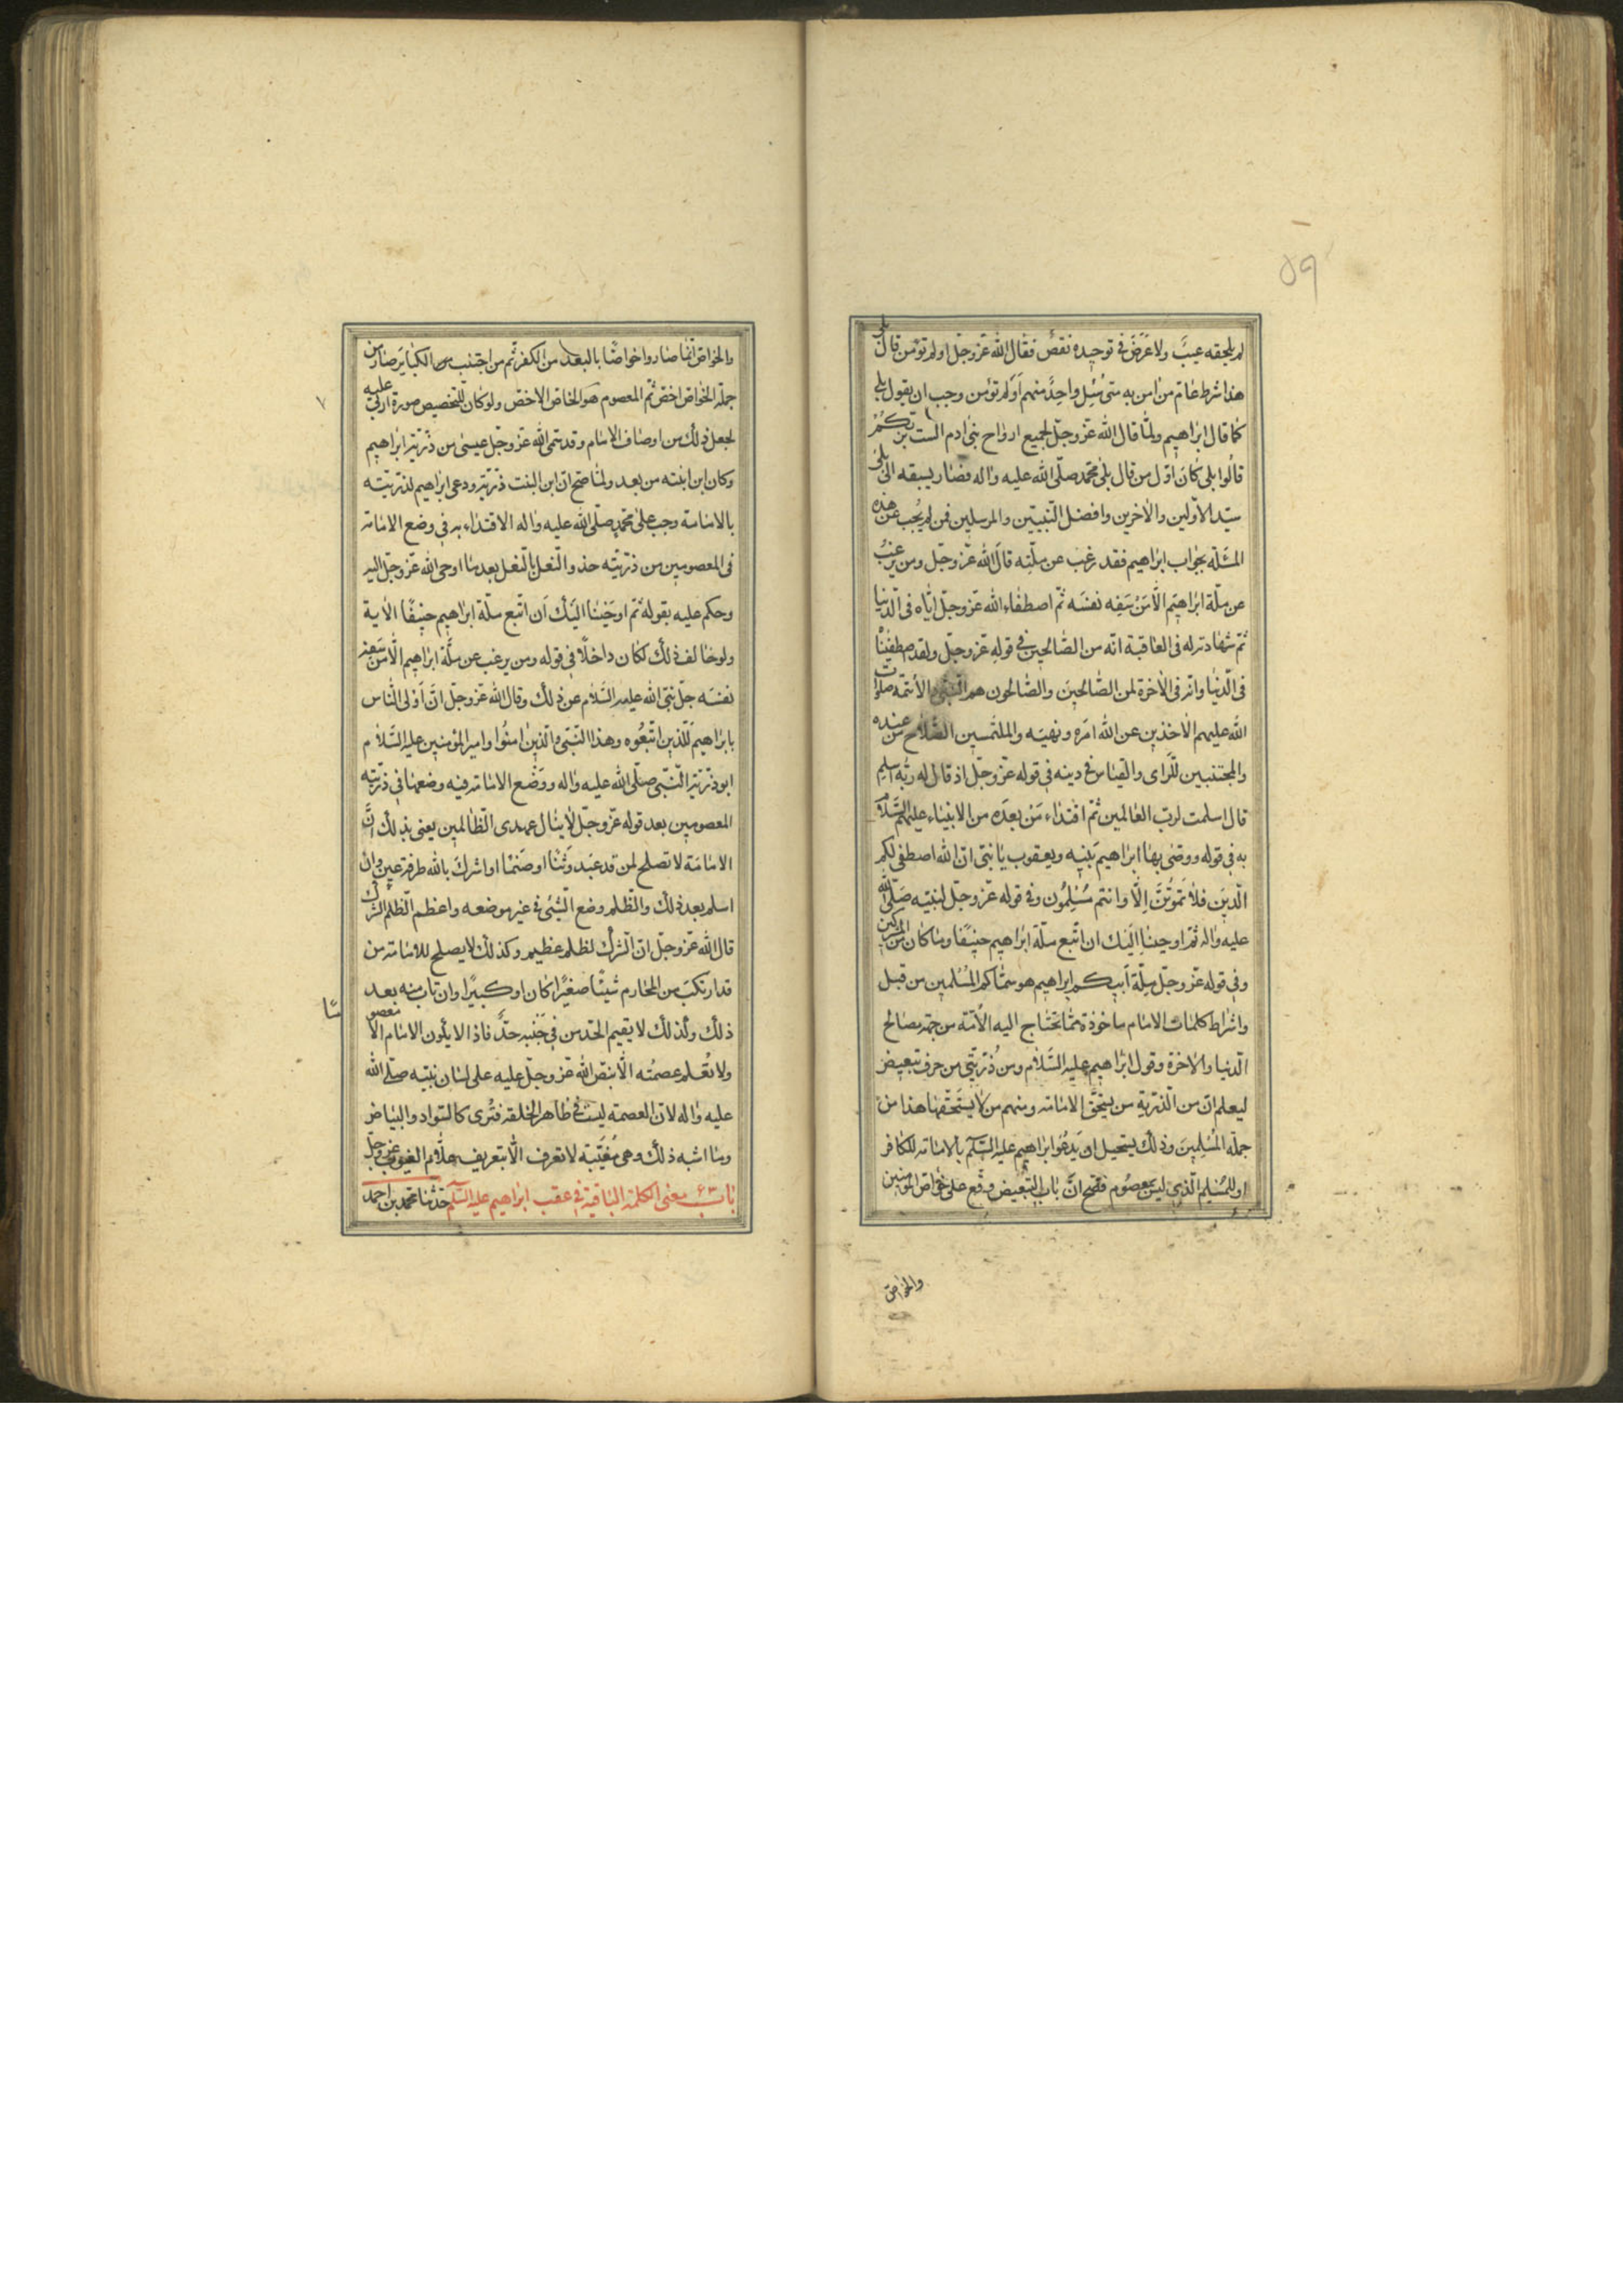 ٥٩
لم يلحقه عيب ولا عرض في توحيده نقص فقال الله عز وجل اولم تؤمن قال بلى
هذا شرط عام من امن به متى سئل واحد منهم اولم تؤمن وجب ان يقول بلى
كما قال ابراهيم ولما قال الله عز وجل لجميع ارواح بني ادم الست بربكم
قالوا بلى كان اول من قال بلى محمد صلى الله عليه واله فصار بسبقه الى بلى
سيد الاولين والاخرين وافضل النبيين والمرسلين فمن لم يجب عن هذه
المسئلة بجواب ابراهيم فقد رغب عن ملته قال الله عز وجل ومن يرغب
عن ملة ابراهيم الا من سفه نفسه ثم اصطفاء الله عز وجل اياه في الدنيا
ثم شهادته له في العاقبة انه من الصالحين في قوله عز وجل ولقد اصطفيناه
في الدنيا وانه في الاخرة لمن الصالحين والصالحون هم النبي والائمة صلوات
الله عليهم الاخذين عن الله امره ونهيه والملتمسين الصلاح من عنده
والمجتنبين للراى والقياس في دينه في قوله عز وجل اذ قال له ربه اسلم
قال اسلمت لرب العالمين ثم اقتداء من بعده من الانبياء عليهم السلام
به في قوله ووصى بها ابراهيم بنيه ويعقوب يا بني ان الله اصطفى لكم
الدين فلا تموتن الا وانتم مسلمون وفي قوله عز وجل لنبيه صلى الله
عليه واله ثم اوحينا اليك ان اتبع ملة ابراهيم حنيفا وما كان من المشركين
وفي قوله عز وجل ملة ابيكم ابراهيم هو سماكم المسلمين من قبل
واشراط كلمات الامام ماخوذة مما تحتاج اليه الامة من جهة مصالح
الدنيا والاخرة وقول ابراهيم عليه السلام ومن ذريتي من حرف تبعيض
ليعلم ان من الذرية من يستحق الامامة ومنهم من لا يستحقها هذا من
جملة المسلمين وذلك يستحيل ان يدعو ابراهيم عليه السلام بالامامة للكافر
او للمسلم الذي ليس بمعصوم فصح ان باب التبعيض وقع على خواص المؤمنين
والخواص
والخواص انما صاروا خواصا بالبعد من الكفر ثم من اجتنب من الكبائر صار من
جملة الخواص اخص ثم المعصوم هو الخاص الاخص ولو كان للتخصيص صورة اربى عليه
لجعل ذلك من اوصاف الامام وقد سمى الله عز وجل عيسى من ذرية ابراهيم
وكان ابن ابنته من بعد ولما صح ان ابن البنت ذرية ودعى ابراهيم لذريته
بالامامة وجب على محمد صلى الله عليه واله الاقتداء به في وضع الامامة
في المعصومين من ذريته حذو النعل بالنعل بعد ما اوحى الله عز وجل اليه
وحكم عليه بقوله ثم اوحينا اليك ان اتبع ملة ابراهيم حنيفا الاية
ولو خالف ذلك لكان داخلا في قوله ومن يرغب عن ملة ابراهيم الا من سفه
نفسه جل نبي الله عليه السلام عن ذلك وقال الله عز وجل ان اولى الناس
بابراهيم للذين اتبعوه وهذا النبي والذين امنوا وامير المؤمنين عليه السلام
ابو ذرية النبي صلى الله عليه واله ووضع الامامة فيه وضعها في ذريته
المعصومين بعد قوله عز وجل لا ينال عهدى الظالمين يعني بذلك ان
الامامة لا تصلح لمن قد عبد وثنا او صنما او اشرك بالله طرفة عين وان
اسلم بعد ذلك والظلم وضع الشئ في غير موضعه واعظم الظلم الشرك
قال الله عز وجل ان الشرك لظلم عظيم وكذلك لا يصلح للامامة من
قد ارتكب من المحارم شيئا صغيرا كان او كبيرا وان تاب منه بعد
ذلك ولذلك لا يقيم الحد من في جنبه حد فاذا لا يكون الامام الا معصوما
ولا تعلم عصمته الا بنص الله عز وجل عليه على لسان نبيه صلى الله
عليه واله لان العصمة ليست في ظاهر الخلقة فترى كالسواد والبياض
وما اشبه ذلك وهي مغيبة لا تعرف الا بتعريف علام الغيوب عز وجل
باب ٦٣ معنى الكلمة الباقية في عقب ابراهيم عليه السلم حدثنا محمد بن احمد